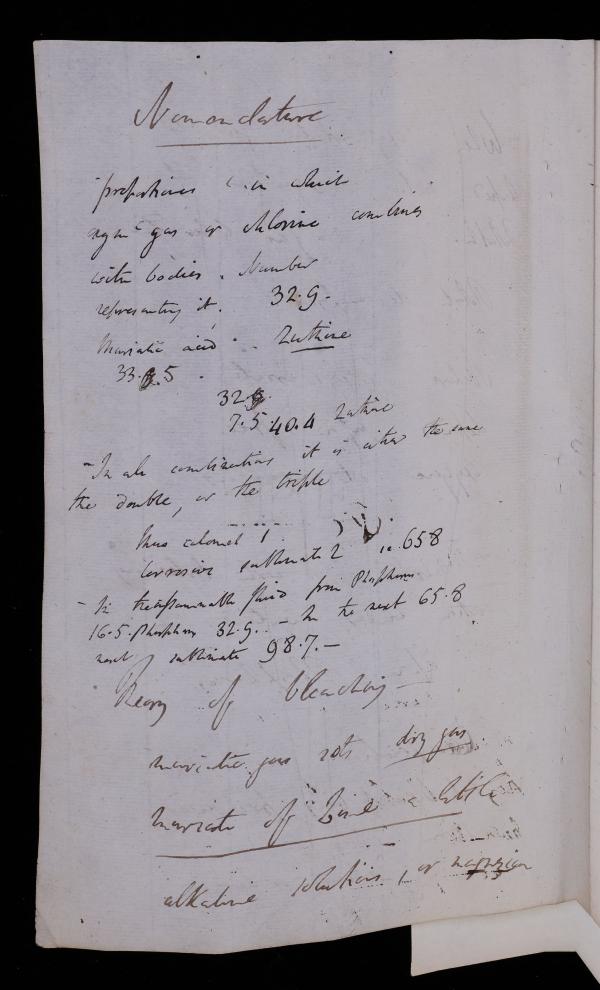 Nomenclature
proportions in which
oxymc gas or chlorine combines
with bodies. Number
representing it. 32.9.
Muriatic acid
33.5
32.9
7.5 40.4
- In all combinations it is either the same
the double, or the triple
Thus calomel 1
Corrosive sublimate 2 65.8
- In the inflammable fluid from Phosphorus
16.5. Phosphorus 32.9. - In the next 65.8
next sublimate 98.7. -
Theory of bleaching -
muriatic gas dry gas
muriate of Lime
alkaline solutions, or magnesian